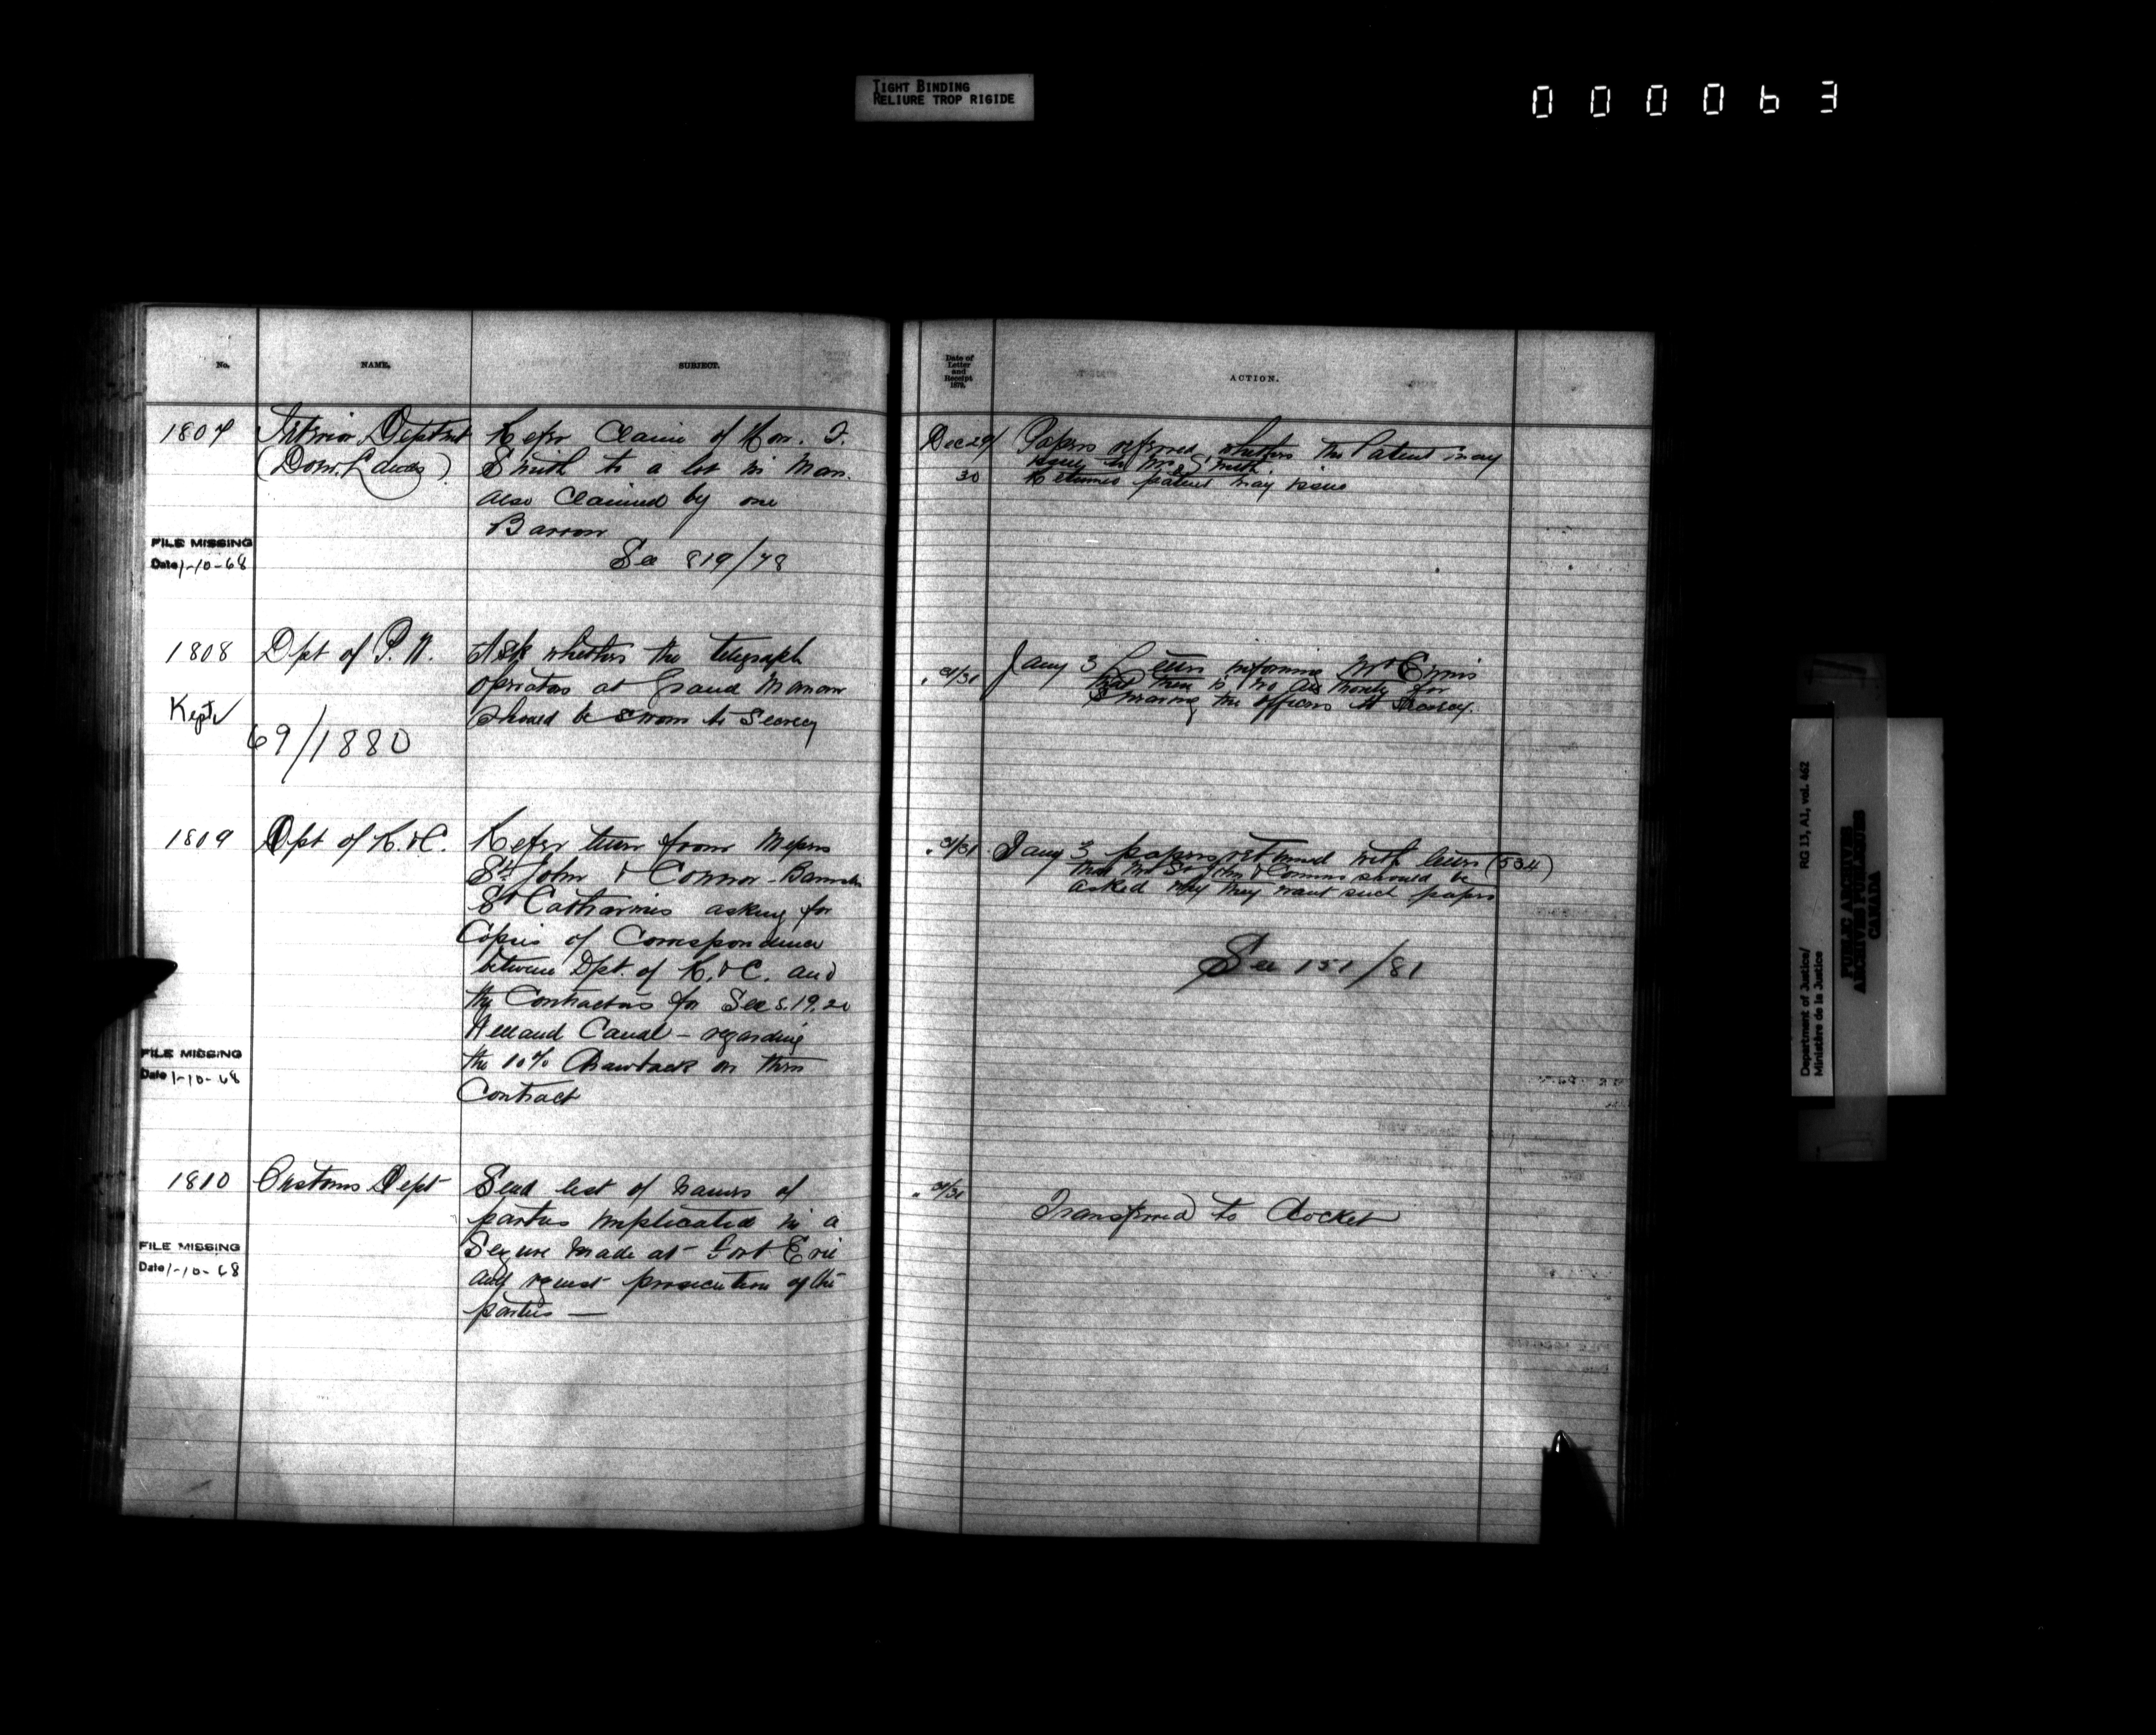 TIGHT BINDING
RELIURE TROP RIGIDE
000063
No. NAME. SUBJECT.
1807 Interior Deptmt Refer Claim of Hon. F.
(Dom. Lands) Smith to a lot in Man.
also Claimed by one
Barron
FILE MISSING
Date 1-10-68
See 819/78
1808 Dpt of P. W. Ask whether the telegraph
operators at Grand Manan
should be sworn to secrecy
Kept
69/1880
1809 Dpt of R. & C. Refer from Messrs
St. John & Connor - Barristers
St Catharines asking for
Copies of Correspondence
between Dpt. of R. & C. and
the Contractors for Secs. 19.20
Welland Canal - regarding
the 10% Drawback on their
Contract
FILE MISSING
Date 1-10-68
1810 Customs Dept Send list of names of
parties implicated in a
Seizure made at Fort Erie
and request prosecution of the
parties —
FILE MISSING
Date 1-10-68
Date of
Letter
and
Receipt
187
ACTION.
Dec 29/ Papers referred, whether the Patent may
issue to Mr. Smith.
30 Returned patent may issue
" 31 Jany 3 informing Mr
that there is no authority for
swearing the officers to secrecy.
" 31 Jany 3 papers returned with (534)
that St John & Connor should be
asked why they want such papers
See 151/81
" 31 Transferred to Docket
Department of Justice/
Ministère de la Justice
RG 13, A1, vol. 462
PUBLIC ARCHIVES
ARCHIVES PUBLIQUES
CANADA